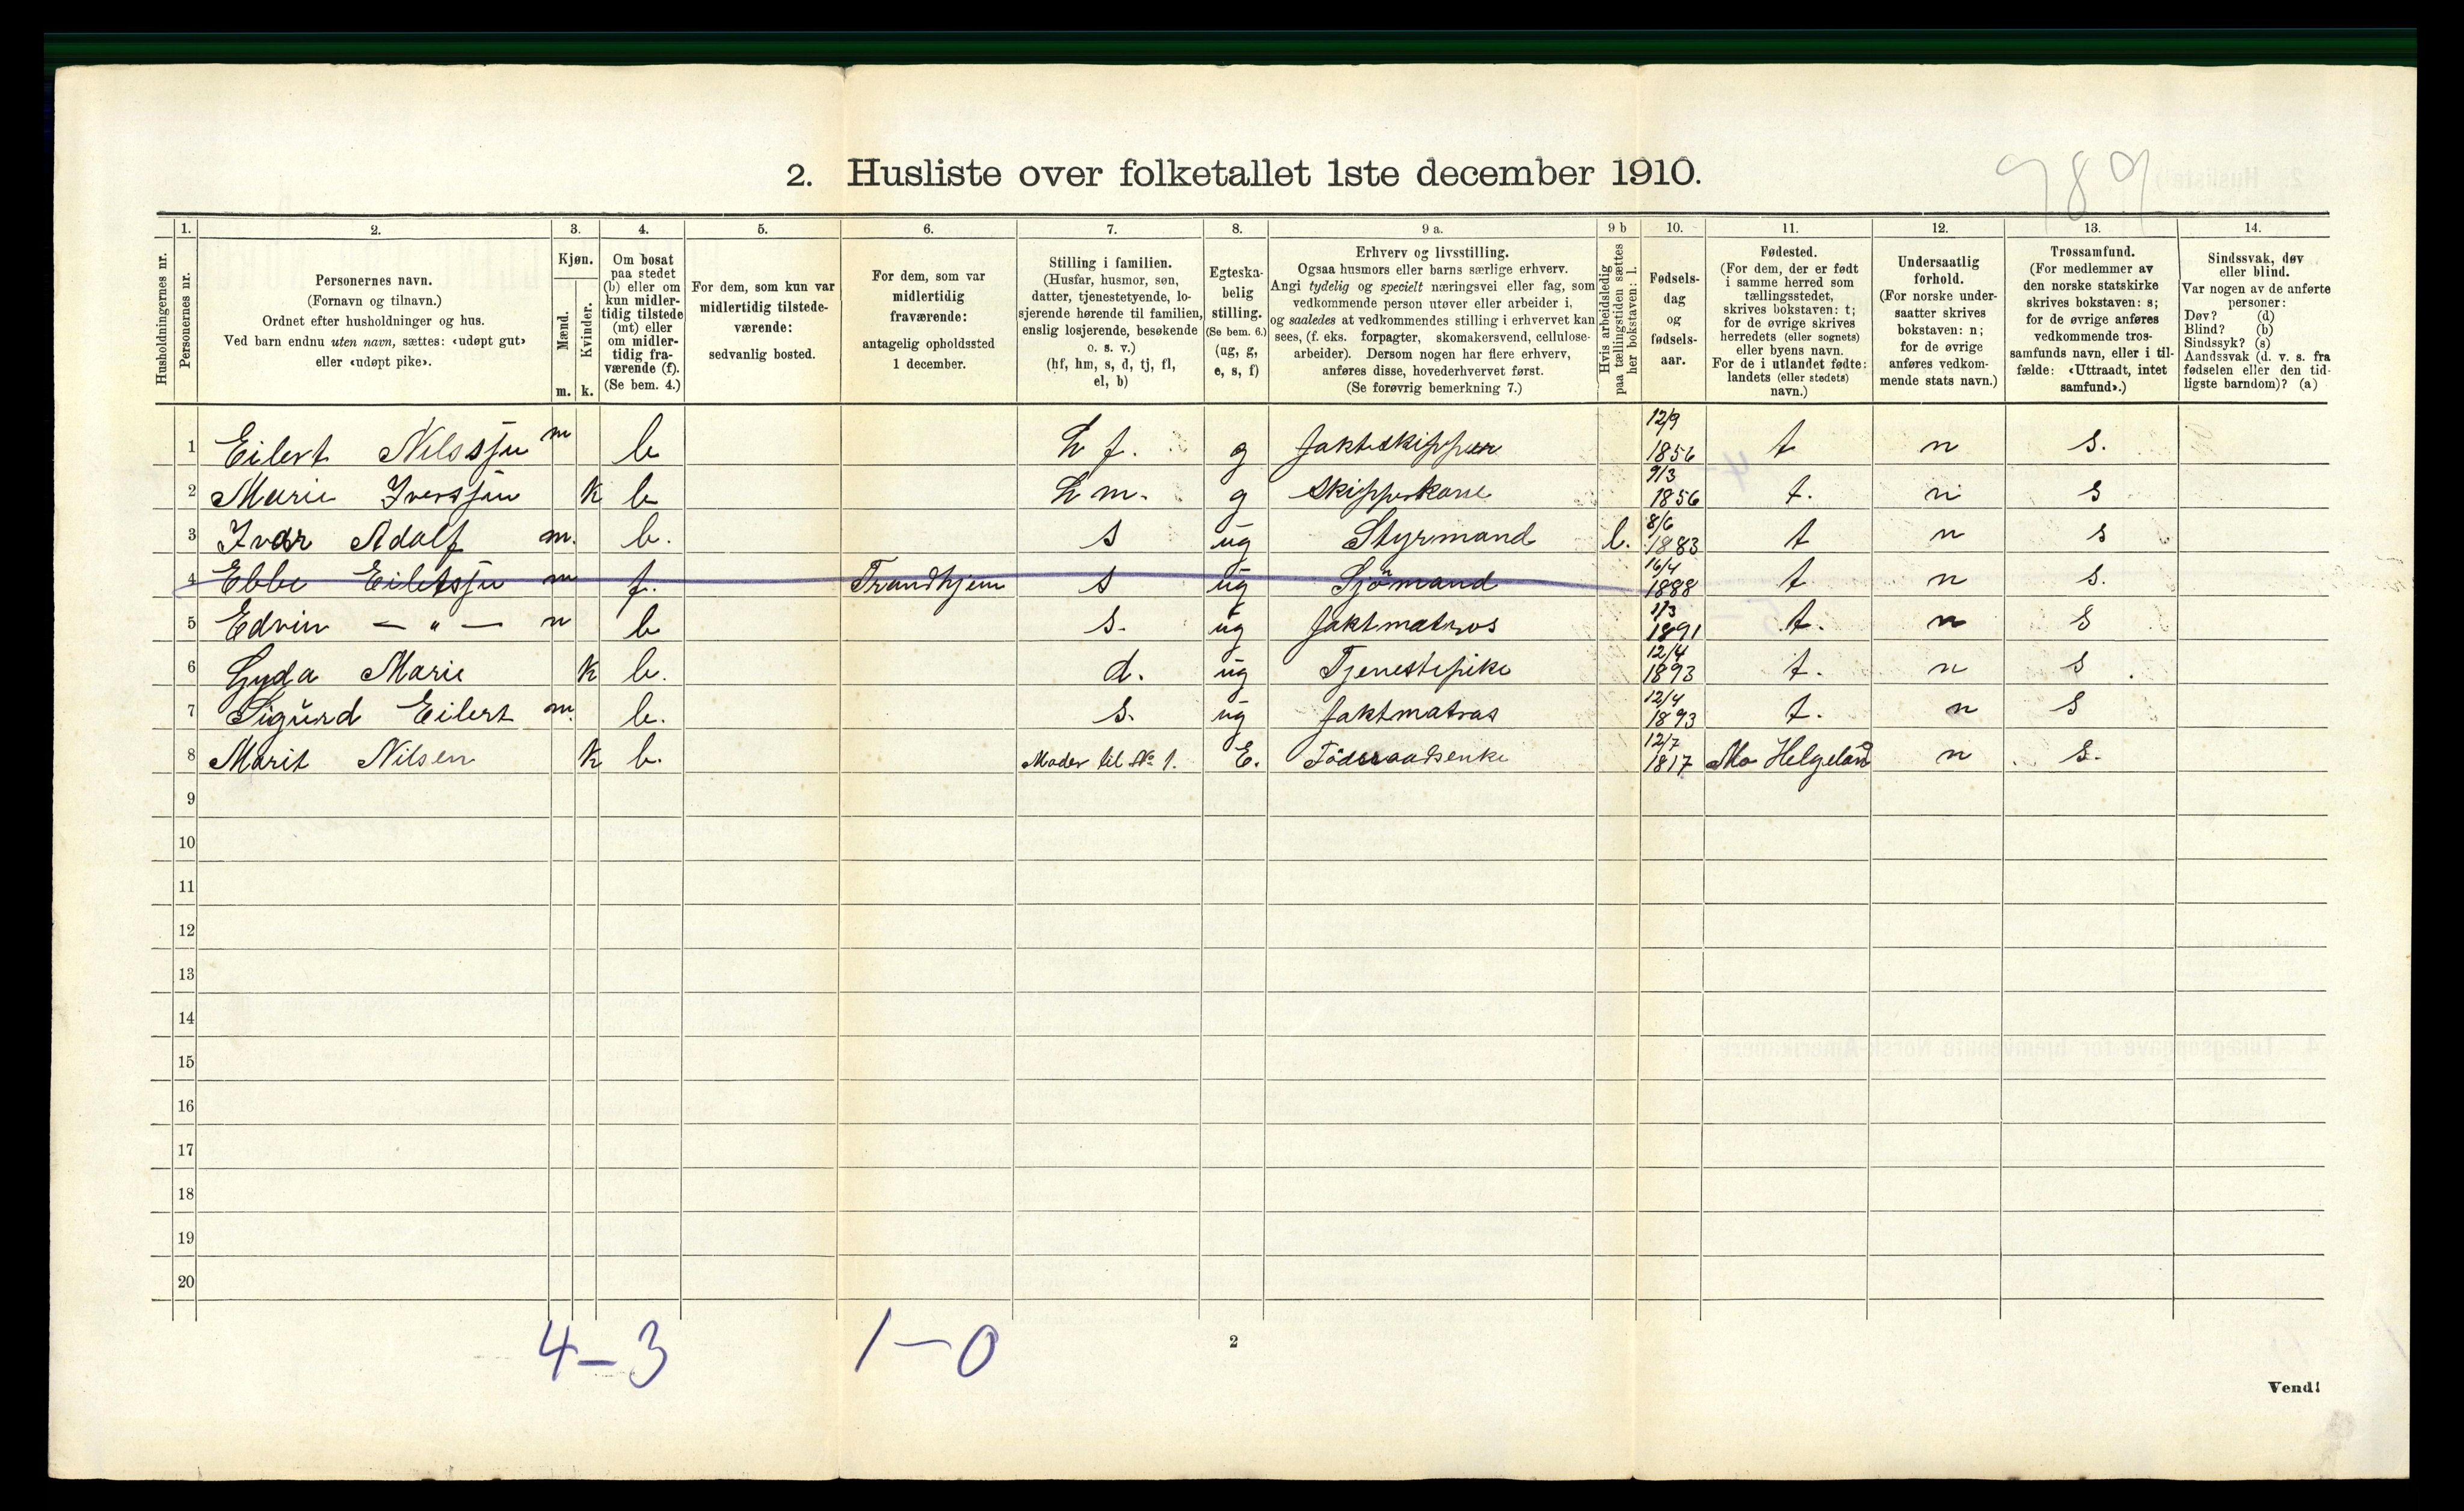 989
2. Husliste over folketallet 1ste december 1910.
1. 2. 3. 4. 5. 6. 7. 8. 9 a. 9 b 10. 11. 12. 13. 14.
Husholdningernes nr.
Personernes nr.
Personernes navn.
(Fornavn og tilnavn.)
Ordnet efter husholdninger og hus.
Ved barn endnu uten navn, sættes: «udøpt gut»
eller «udøpt pike».
Kjøn.
Mænd.
Kvinder.
m. k.
Om bosat
paa stedet
(b) eller om
kun midler-
tidig tilstede
(mt) eller
om midler-
tidig fra-
værende (f).
(Se bem. 4.)
For dem, som kun var
midlertidig tilstede-
værende:
sedvanlig bosted.
For dem, som var
midlertidig
fraværende:
antagelig opholdssted
1 december.
Stilling i familien.
(Husfar, husmor, søn,
datter, tjenestetyende, lo-
sjerende hørende til familien,
enslig losjerende, besøkende
o. s. v.)
(hf, hm, s, d, tj, fl,
el, b)
Egteska-
belig
stilling.
(Se bem. 6.)
(ug, g,
e, s, f)
Erhverv og livsstilling.
Ogsaa husmors eller barns særlige erhverv.
Angi tydelig og specielt næringsvei eller fag, som
vedkommende person utøver eller arbeider i,
og saaledes at vedkommendes stilling i erhvervet kan
sees, (f. eks. forpagter, skomakersvend, cellulose-
arbeider). Dersom nogen har flere erhverv,
anføres disse, hovederhvervet først.
(Se forøvrig bemerkning 7.)
Hvis arbeidsledig
paa tællingstiden sættes
her bokstaven: l.
Fødsels-
dag
og
fødsels-
aar.
Fødested.
(For dem, der er født
i samme herred som
tællingsstedet,
skrives bokstaven: t;
for de øvrige skrives
herredets (eller sognets)
eller byens navn.
For de i utlandet fødte:
landets (eller stedets)
navn.)
Undersaatlig
forhold.
(For norske under-
saatter skrives
bokstaven: n;
for de øvrige
anføres vedkom-
mende stats navn.)
Trossamfund.
(For medlemmer av
den norske statskirke
skrives bokstaven: s;
for de øvrige anføres
vedkommende tros-
samfunds navn, eller i til-
fælde: «Uttraadt, intet
samfund».)
Sindssvak, døv
eller blind.
Var nogen av de anførte
personer:
Døv? (d)
Blind? (b)
Sindssyk? (s)
Aandssvak (d. v. s. fra
fødselen eller den tid-
ligste barndom)? (a)
1 Eilert Nilssøn m b h f. g Jakteskipper 12/9 1856 t n s.
2 Marie Iversjøn k b h m. g Skipperkone 9/3 1856 t. n s
3 Ivar Adolf m. b. s ug Styrmand l. 8/6 1883 t n s
4 Ebbe Eiletsjn m f. Trondhjem s ug Sjömand 16/4 1888 t n s.
5 Edvin — " — m b s. ug Jaktmatros 1/3 1891 t. n s
6 Gyda Marie k b. d. ug Tjenestepike 12/4 1893 t. n s
7 Sigurd Eilert m. b. s. ug Jaktmatros 12/4 1893 t. n s
8 Marit Nilsen k b. Moder til No 1. E. Föderaadsenke 12/7 1817 Mo Helgeland n s.
9
10
11
12
13
14
15
16
17
18
19
20
4–3 1–0
2
Vend!